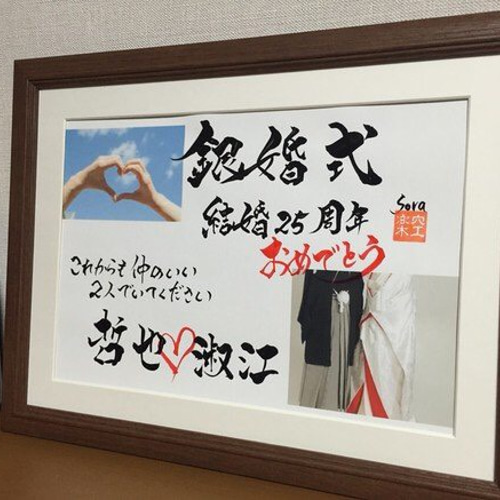 銀婚式
結婚25周年
Sora
おめでとう
これからも仲のいい
2人でいてください
哲也♡淑江